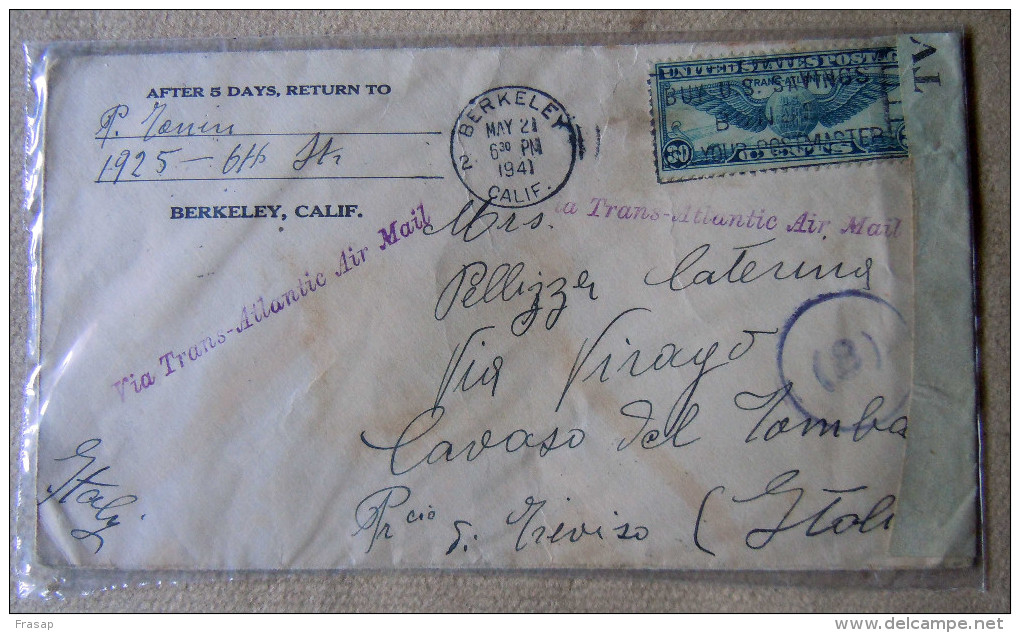 AFTER 5 DAYS, RETURN TO
P.
1925 - 6th St.
BERKELEY, CALIF.
BERKELEY
MAY 21
6 30 PM
1941
2
CALIF.
UNITED STATES POSTA
TRANS-ATLAN
BUY U.S. SAVINGS
YOUR POSTMASTER
30
Via Trans-Atlantic Air Mail
ia Trans-Atlantic Air Mail
Mrs.
Pellizzer Caterina
Via Virago
Cavaso del Tomba
Prcio di Treviso (Itali
Italy.
(B)
Frasap
www.delcampe.net